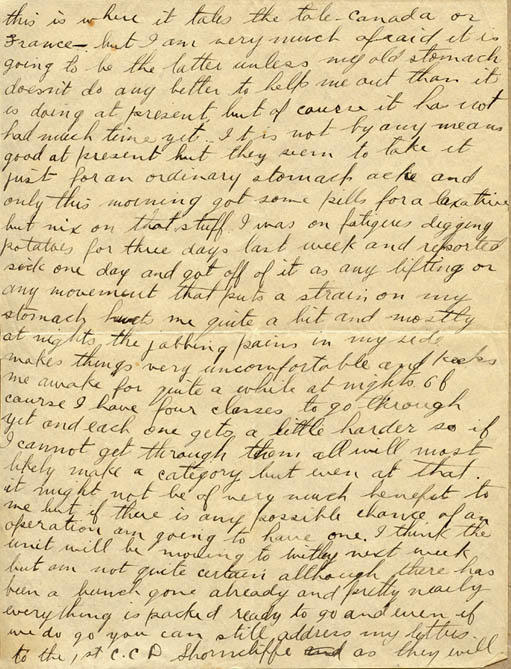 this is where it tales the tale - Canada or
France - but I am very much afraid it is
going to be the latter unless my old stomach
doesn't do any better to help me out than it
is doing at present, but of course it has not
had much time yet. It is not by any means
good at present but they seem to take it
just for an ordinary stomach ache and
only this morning got some pills for a laxative
but nix on that stuff. I was on fatigues digging
potatoes for three days last week and reported
sick one day and got off of it as any lifting or
any movement that puts a strain on my
stomach hurts me quite a bit and mostly
at nights, the jabbing pains in my side
makes things very uncomfortable and keeks
me awake for quite a while at nights. Of
course I have four classes to go through
yet and each one gets a little harder so if
I cannot get through them all will most
likely make a category but even at that
it might not be of very much benefit to
me but if there is any possible chance of an
operation am going to have one. I think the
unit will be moving to witley next week
but am not quite certain although there has
been a bunch gone already and pretty nearly
everything is packed ready to go and even if
we do go you can still address my letters
to the 1st C.C.D. Shorncliffe and as they will